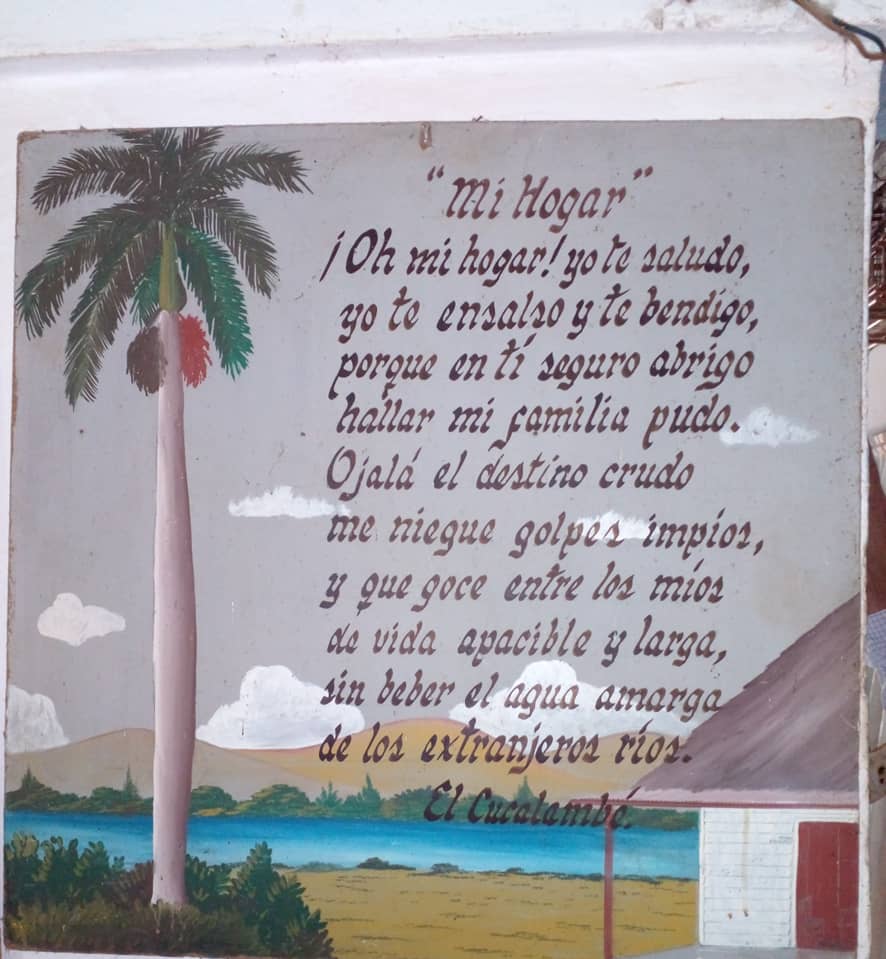 "Mi Hogar"
¡Oh mi hogar! yo te saludo,
yo te ensalso y te bendigo,
porque en tí seguro abrigo
hallar mi familia pudo.
Ojalá el destino crudo
me niegue golpes impíos,
y que goce entre los míos
de vida apacible y larga,
sin beber el agua amarga
de los extranjeros ríos.
El Cucalambé.